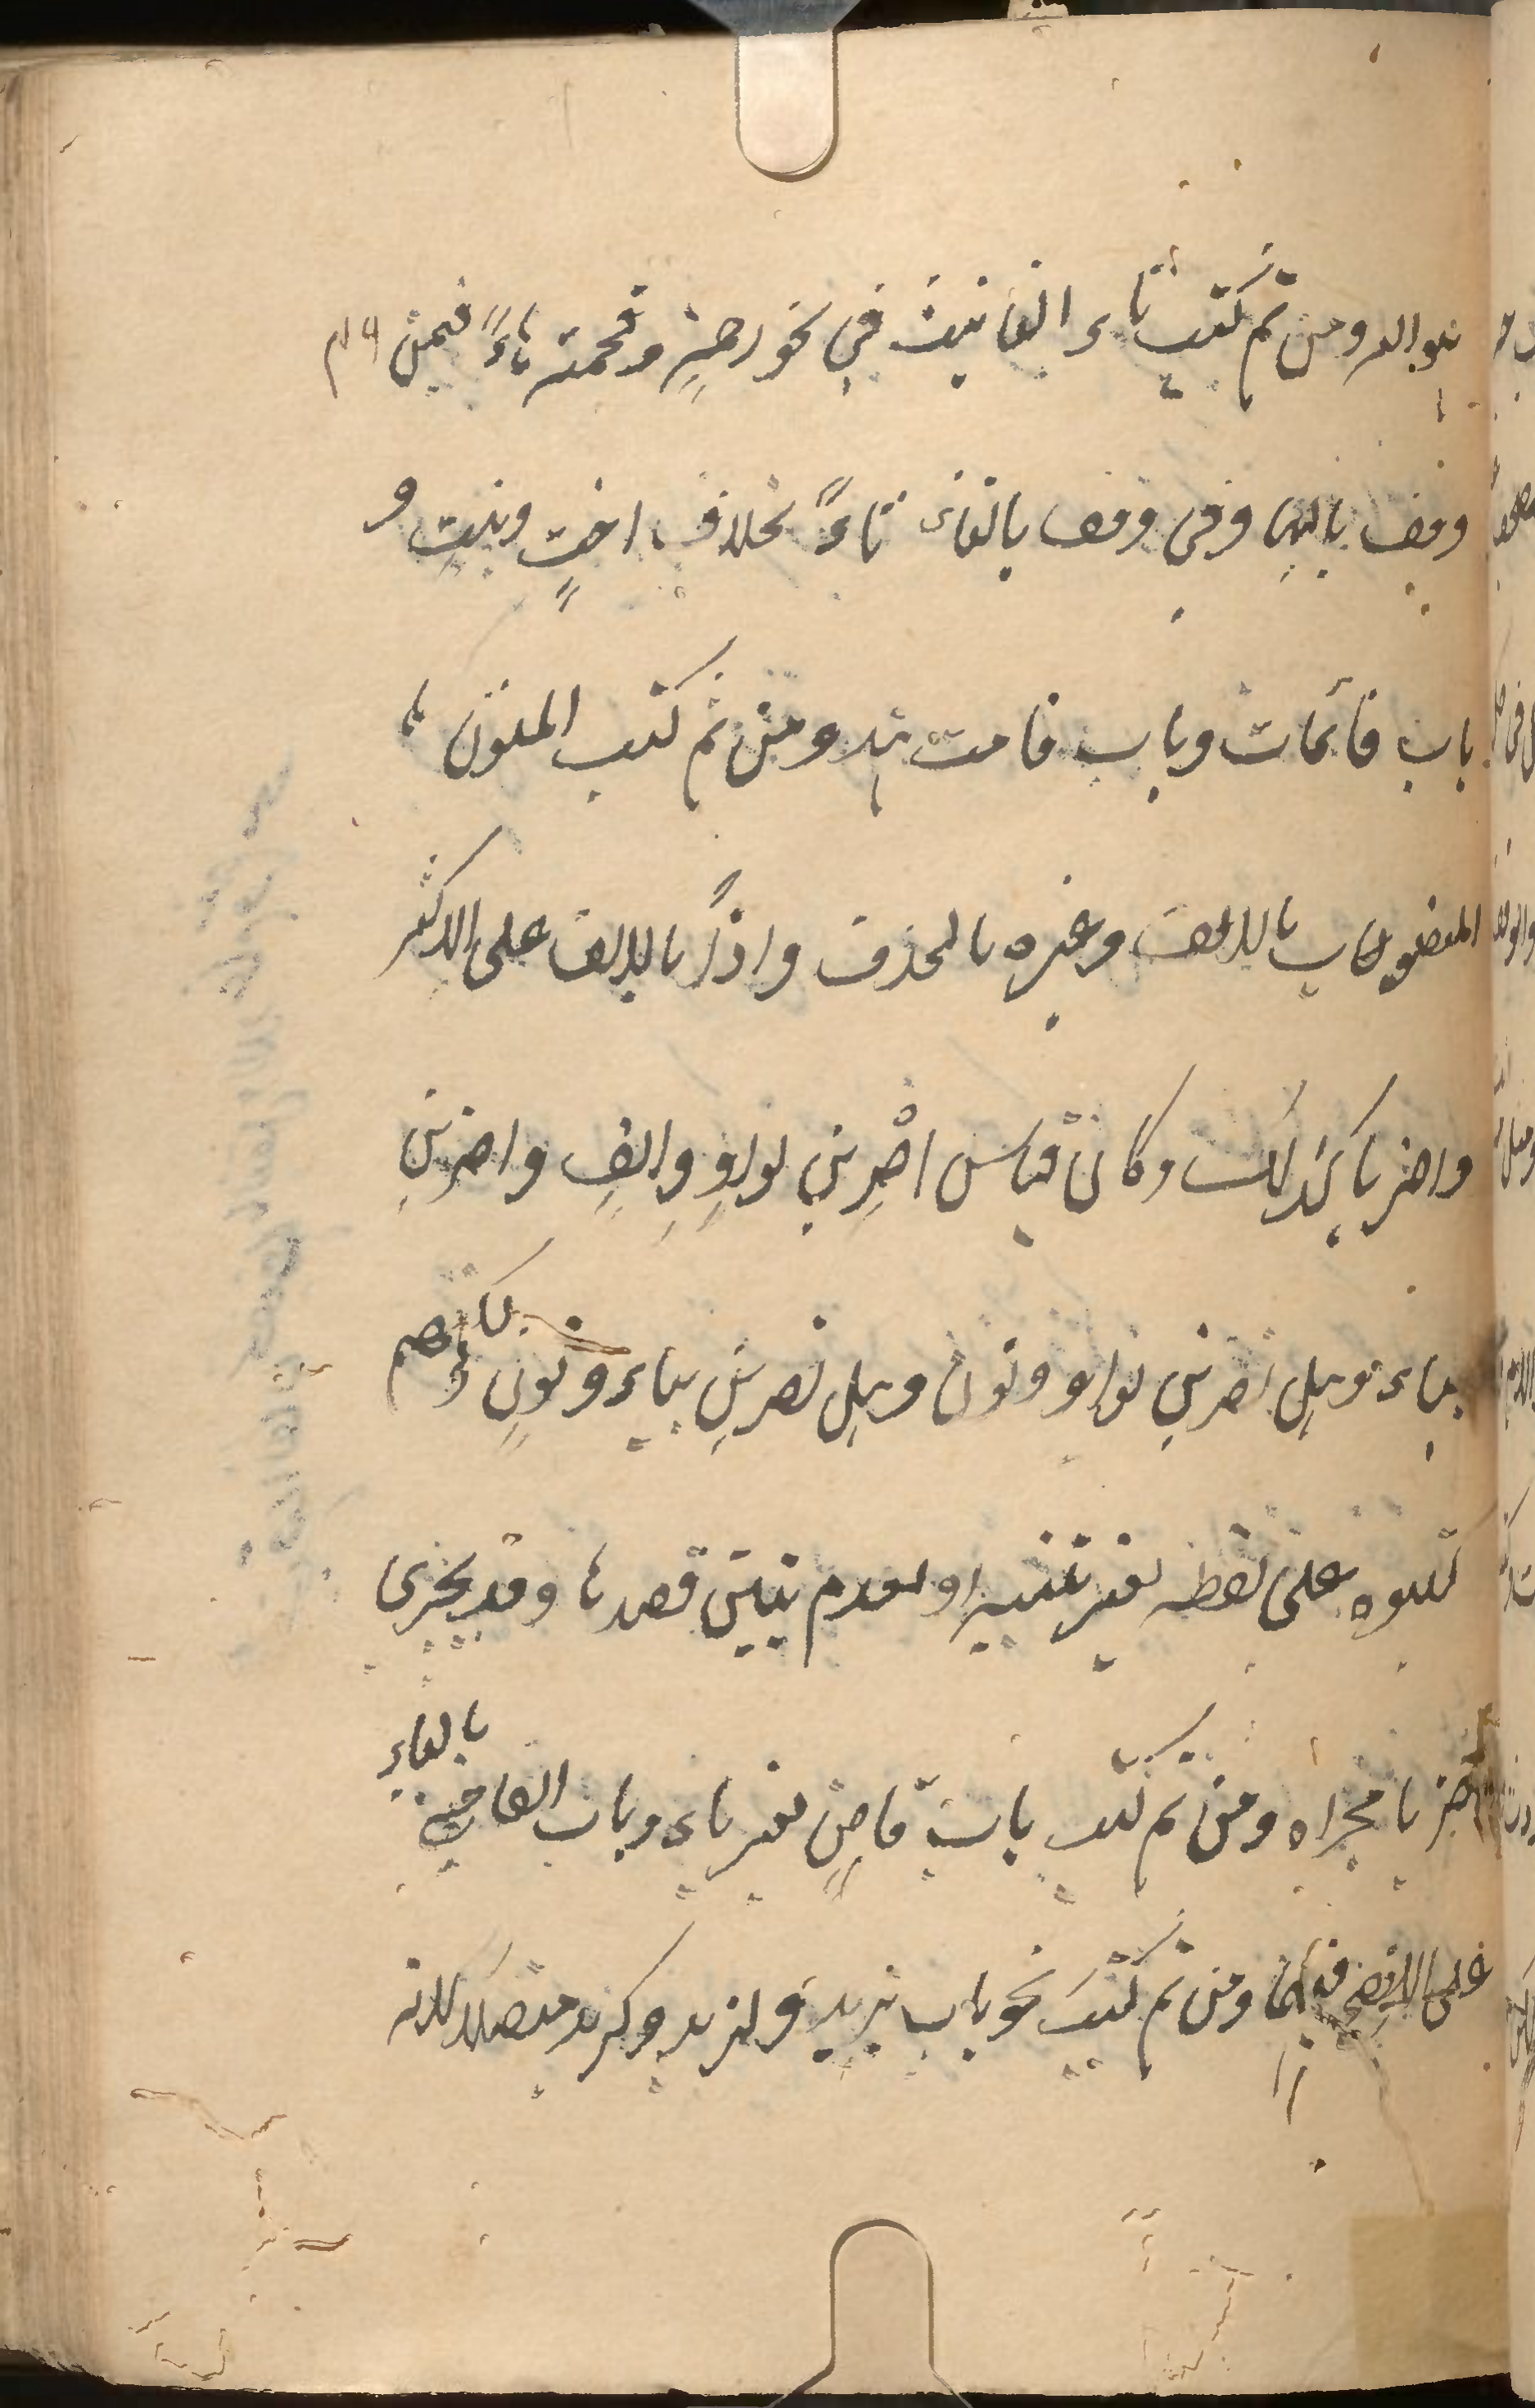 هو الله ومن ثم كتب تاء التانيث في نحو رحمةٍ وقحمة هاءً فيمن
وقف بالهاء وفي وقف بالتاء تاءً بخلاف اختٍ وبنتٍ و
باب قائمات وباب قامت هند ومن ثم كتب المنون
المنصوب بالالف وغيره بالحذف واذاً بالالف على الاكثر
واضربا كذلك وكان قياس اضربن بواوٍ والفٍ واضربن
بياء وهل تضربن بواو ونون وهل تضربن بياءٍ ونونٍ لكنهم
كتبوه على لفظه لعسر تبينه او لعدم تبين قصدها وقد يجرى
اضربا مجراه ومن ثم كتب باب قاضٍ بغير ياء وباب القاضي بالياء
على الافصح فيهما ومن ثم كتب نحو باب بزيد ولزيد وكزيد متصلا لانه